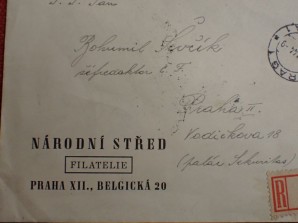 Pan
Bohumil Ševčík
šéfredaktor č. F.
Praha II.
Vodičkova 18
(palác
NÁRODNÍ STŘED
FILATELIE
PRAHA XII., BELGICKÁ 20
PRAG 1
R